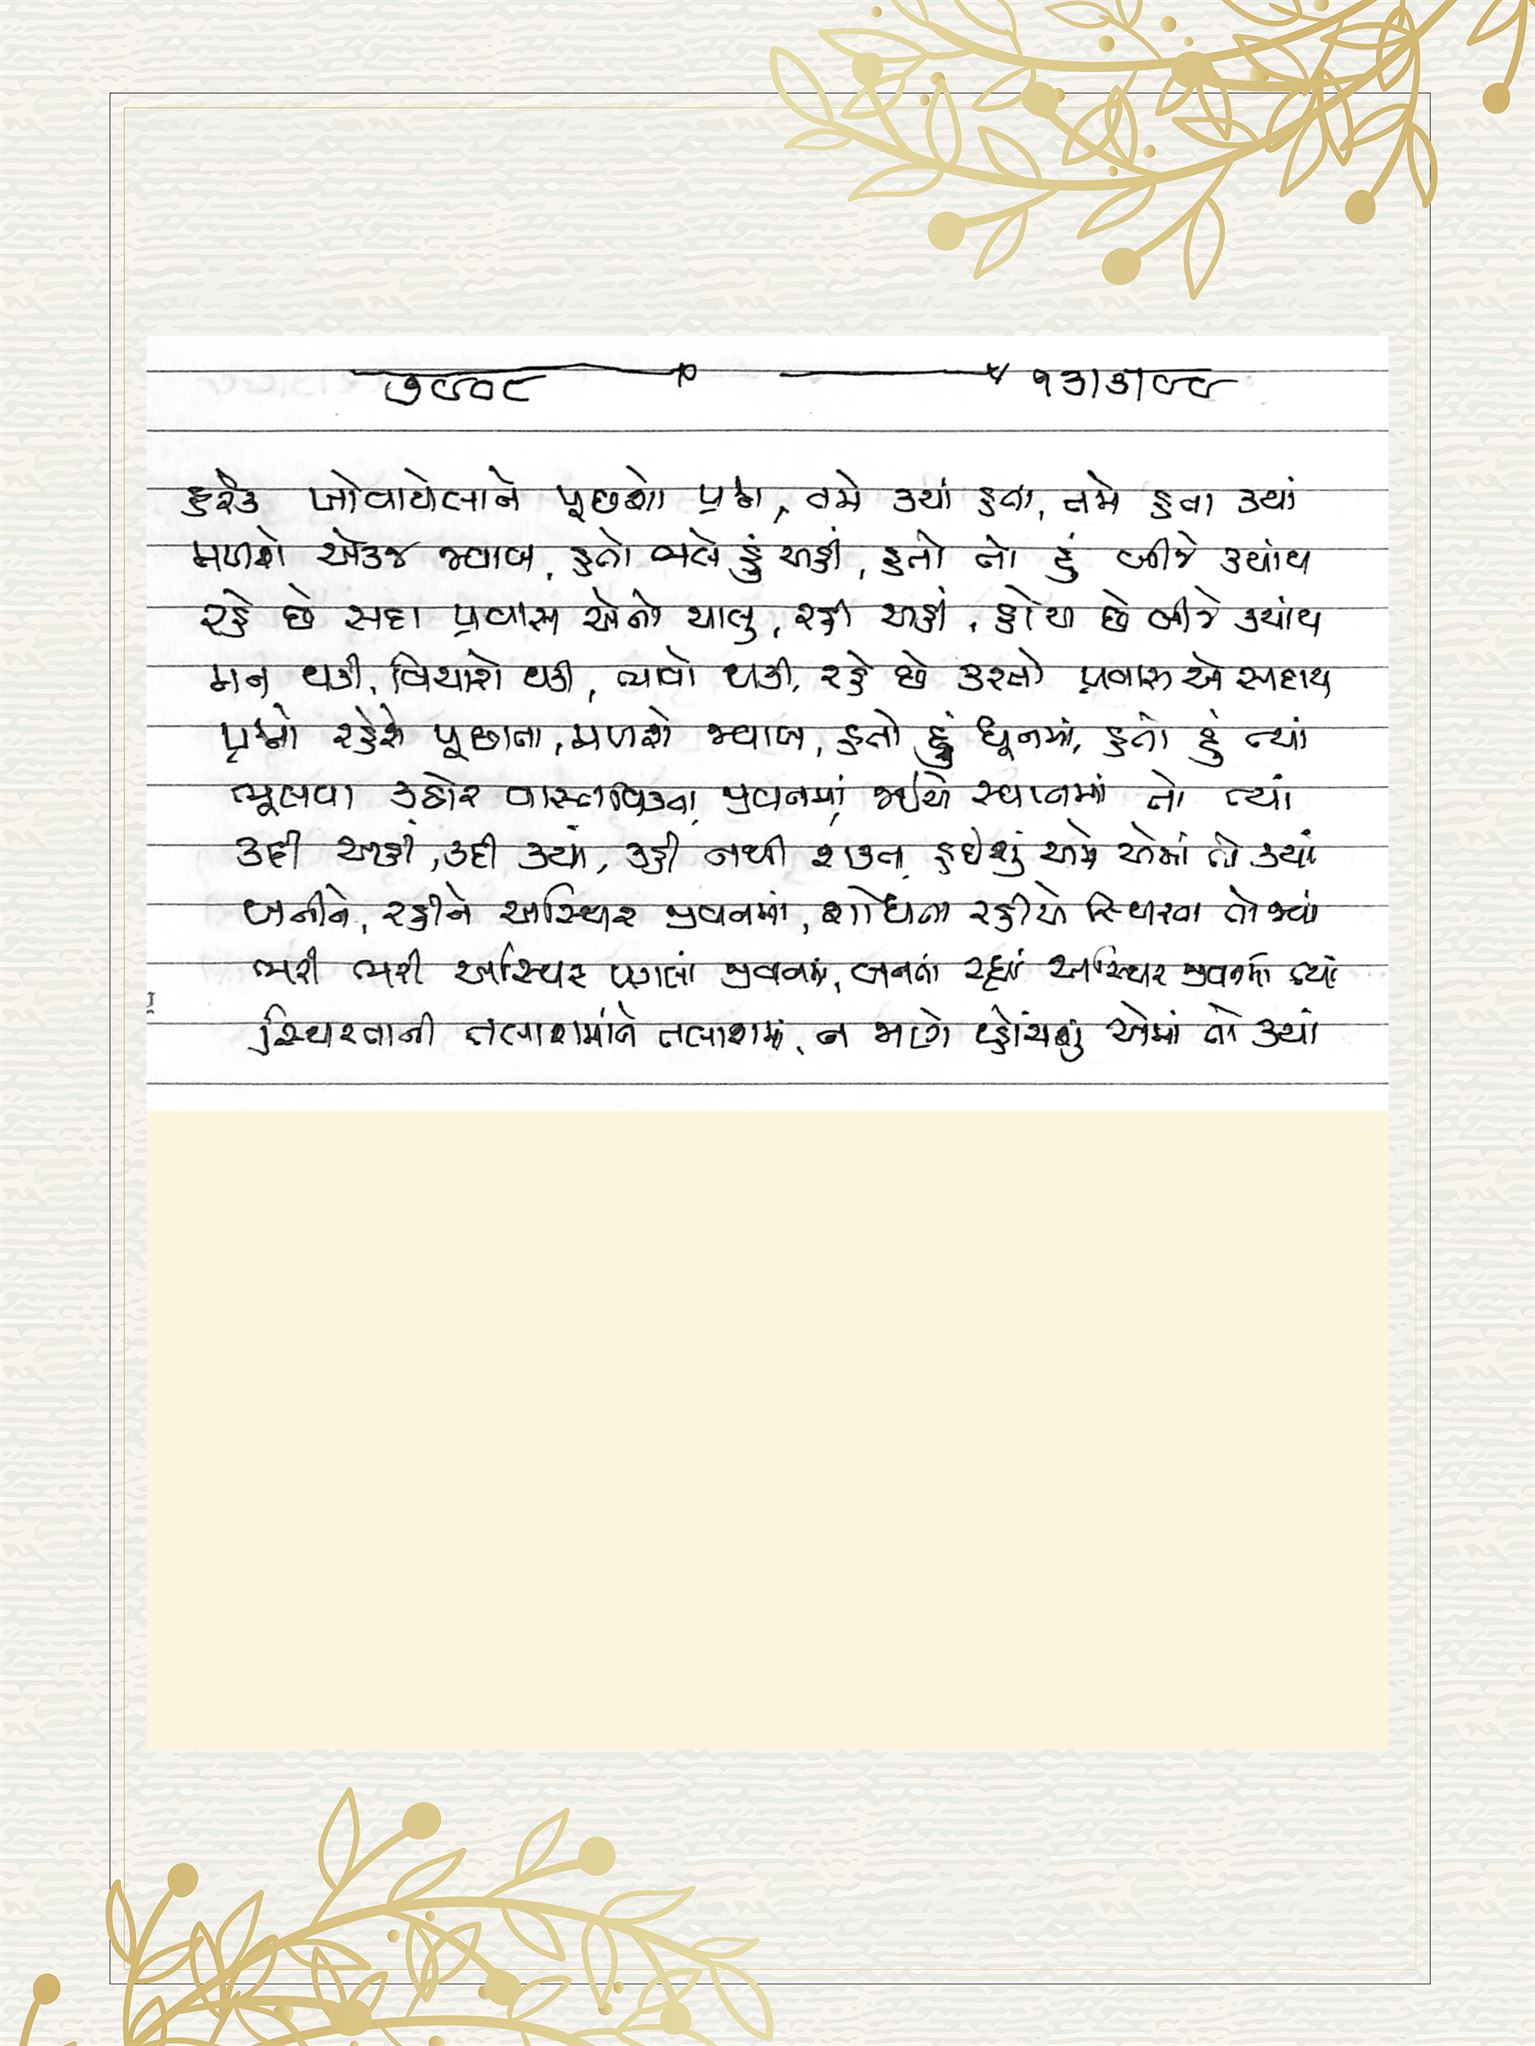 ૭૯૦૮ ૧૩/૩/૯૯
હરેક ખોવાયેલાને પૂછશો પ્રશ્ન, તમે ક્યાં હતા, તમે હતા ક્યાં
મળશે એકજ જવાબ, હતો ભલે હું અહીં, હતો તો હું બીજે ક્યાંય
રહે છે સદા પ્રવાસ એનો ચાલુ, રહી અહીં, હોય છે બીજે ક્યાંય
મન થકી, વિચારો થકી, ભાવો થકી, રહે છે કરતો પ્રવાસ એ સદાય
પ્રશ્નો રહેશે પૂછાતા, મળશે જવાબ, હતો હું ધૂનમાં, હતો હું ત્યાં
ભૂલવા કઠોર વાસ્તવિક્તા જીવનમાં, જઈએ સ્થાનમાં તો ત્યાં
કદી અહીં, કદી ક્યાં, કહી નથી શક્તા, હઈશું અમે એમાં તો ક્યાં
બનીને, રહીને અસ્થિર જીવનમાં, શોધતા રહીએ સ્થિરતા તો જ્યાં
ભરી ભરી અસ્થિર પગલાં જીવનમાં, બનતાં રહ્યાં અસ્થિર જીવનમાં ત્યાં
સ્થિરતાની તલાશમાંને તલાશમાં, ન જાણે પહોંચશું એમાં તો ક્યાં